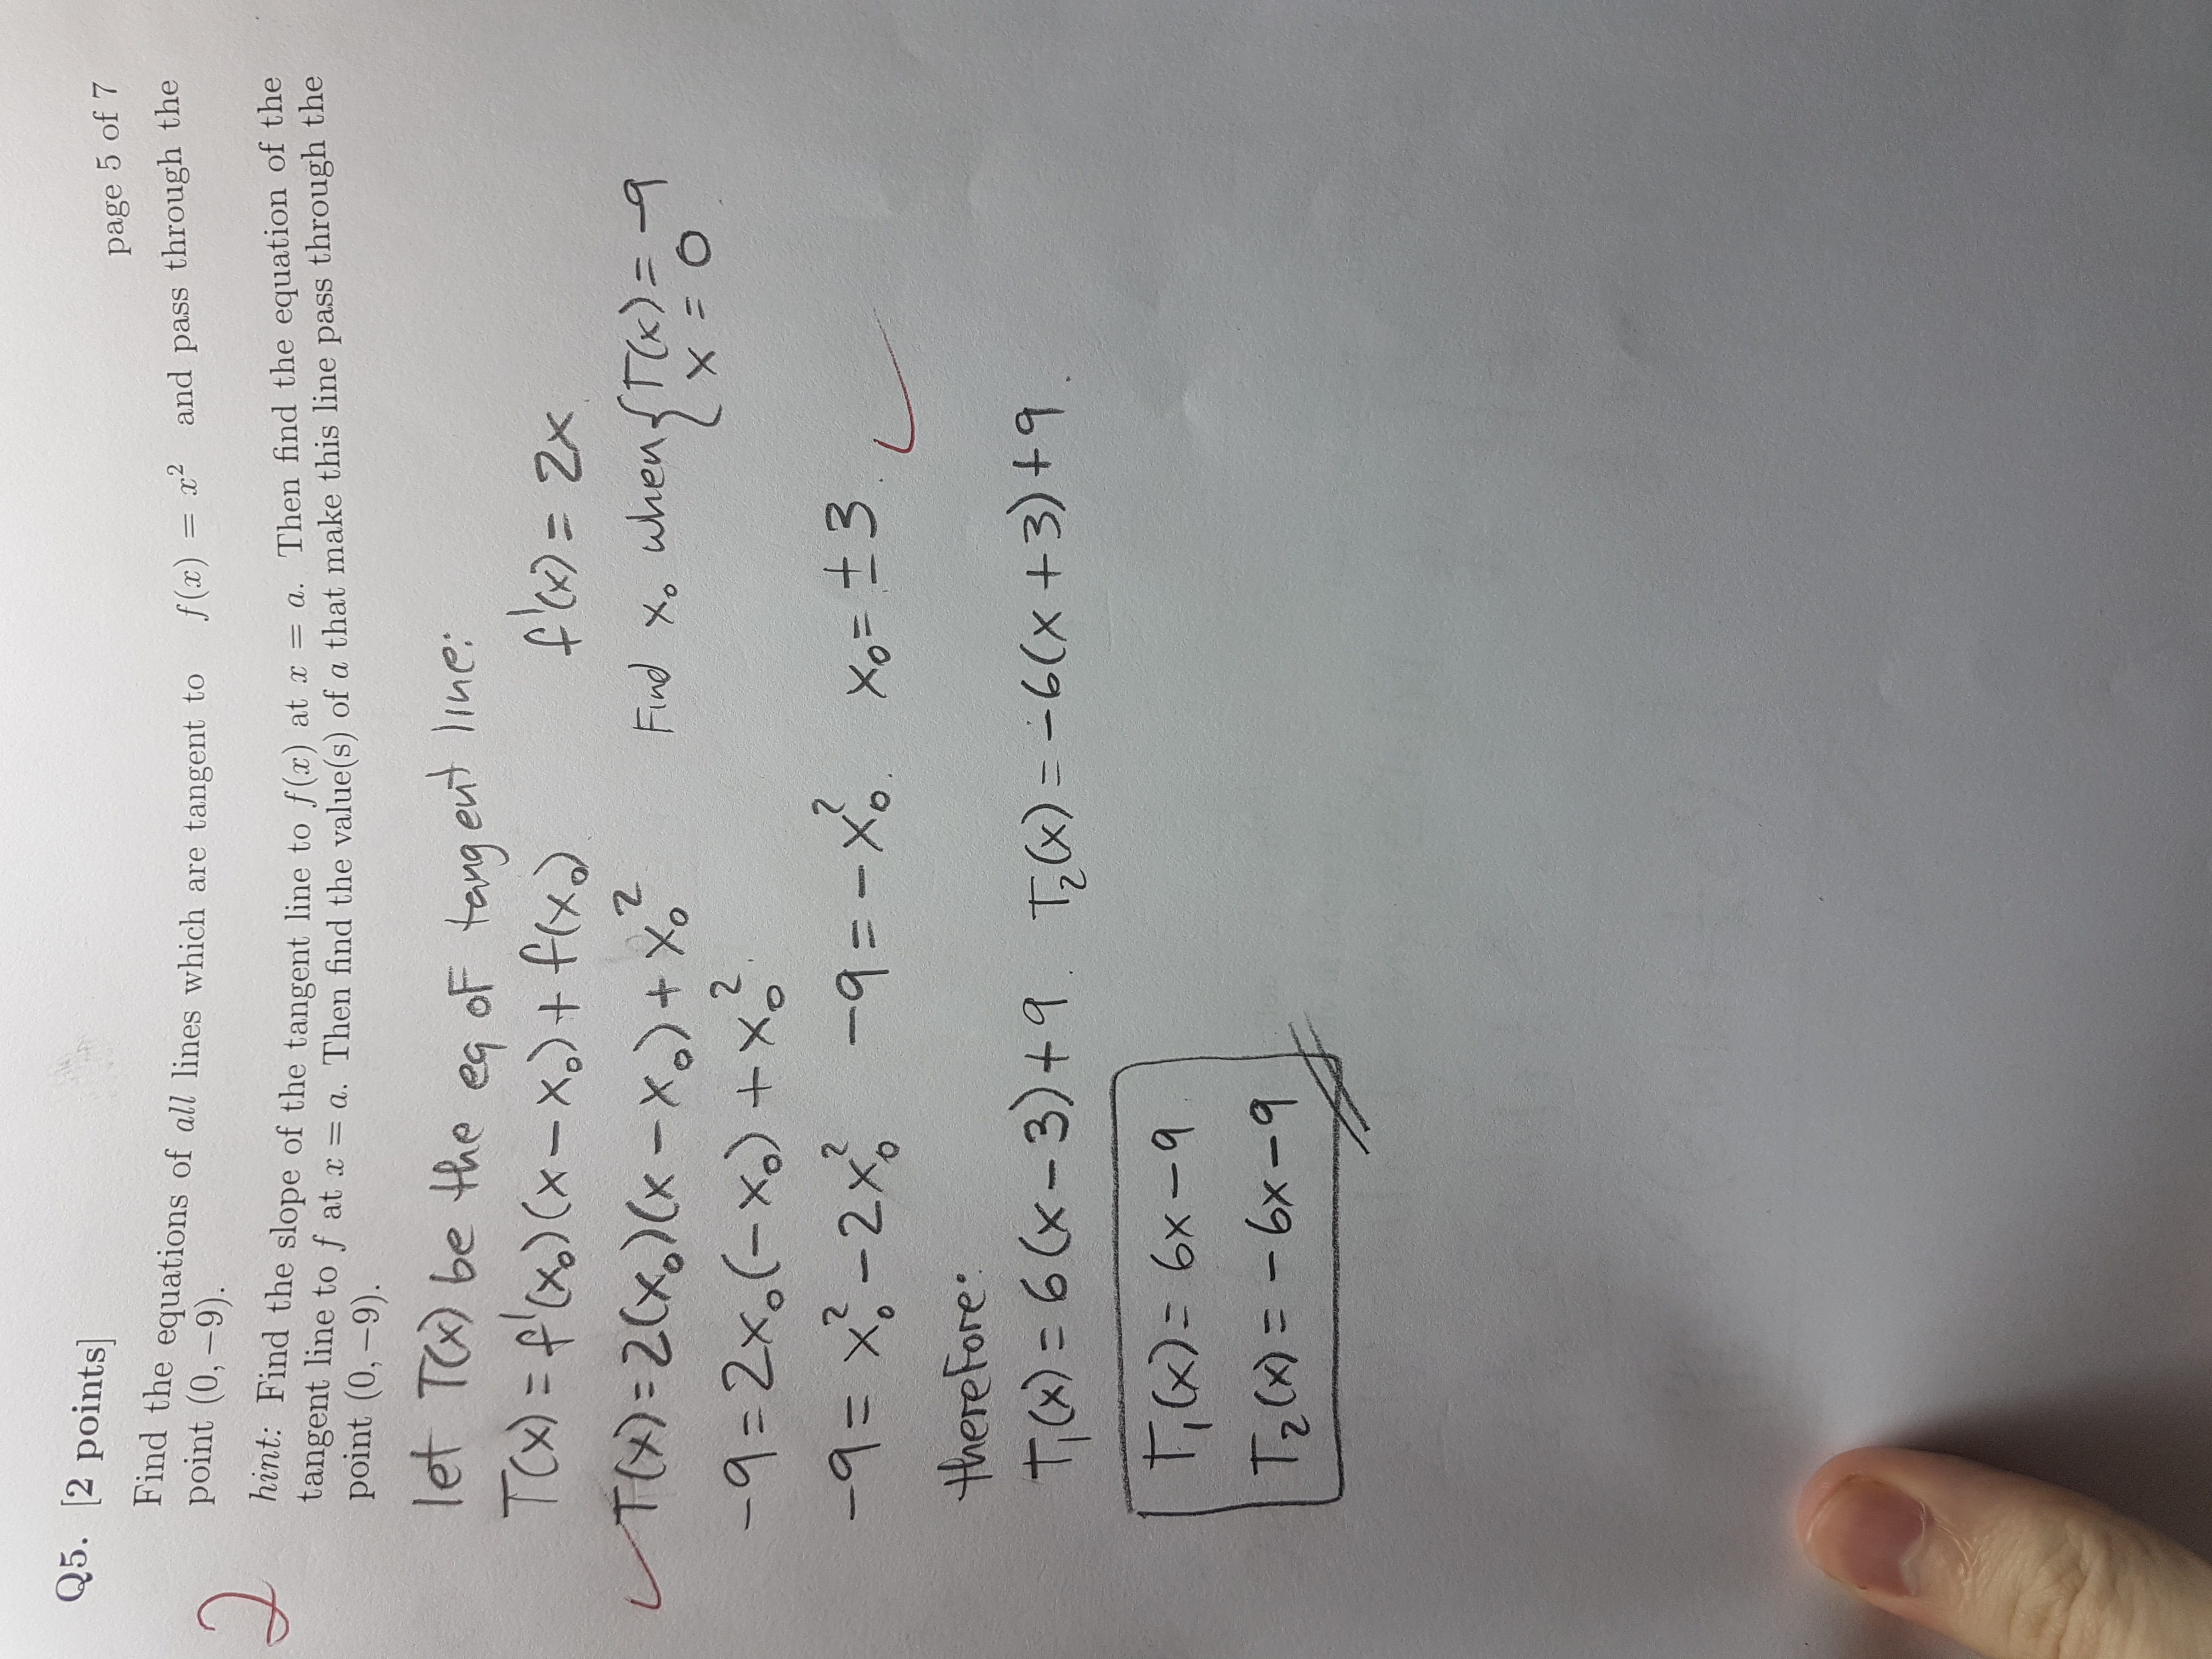 page 5 of 7
Q5. [2 points]
Find the equations of all lines which are tangent to f(x) = x² and pass through the
point (0, −9).
2
hint: Find the slope of the tangent line to f(x) at x = a. Then find the equation of the
tangent line to f at x = a. Then find the value(s) of a that make this line pass through the
point (0, −9).
let T(x) be the eq of tangent line:
T(x) = f'(x₀)(x − x₀) + f(x₀) f'(x) = 2x
✓ T(x) = 2(x₀)(x − x₀) + x₀² Find x₀ when { T(x) = −9
x = 0
−9 = 2x₀(−x₀) + x₀²
−9 = x₀² − 2x₀² −9 = −x₀². x₀ = ±3. ✓
therefore:
T₁(x) = 6(x − 3) + 9. T₂(x) = −6(x + 3) + 9.
T₁(x) = 6x − 9
T₂(x) = −6x − 9